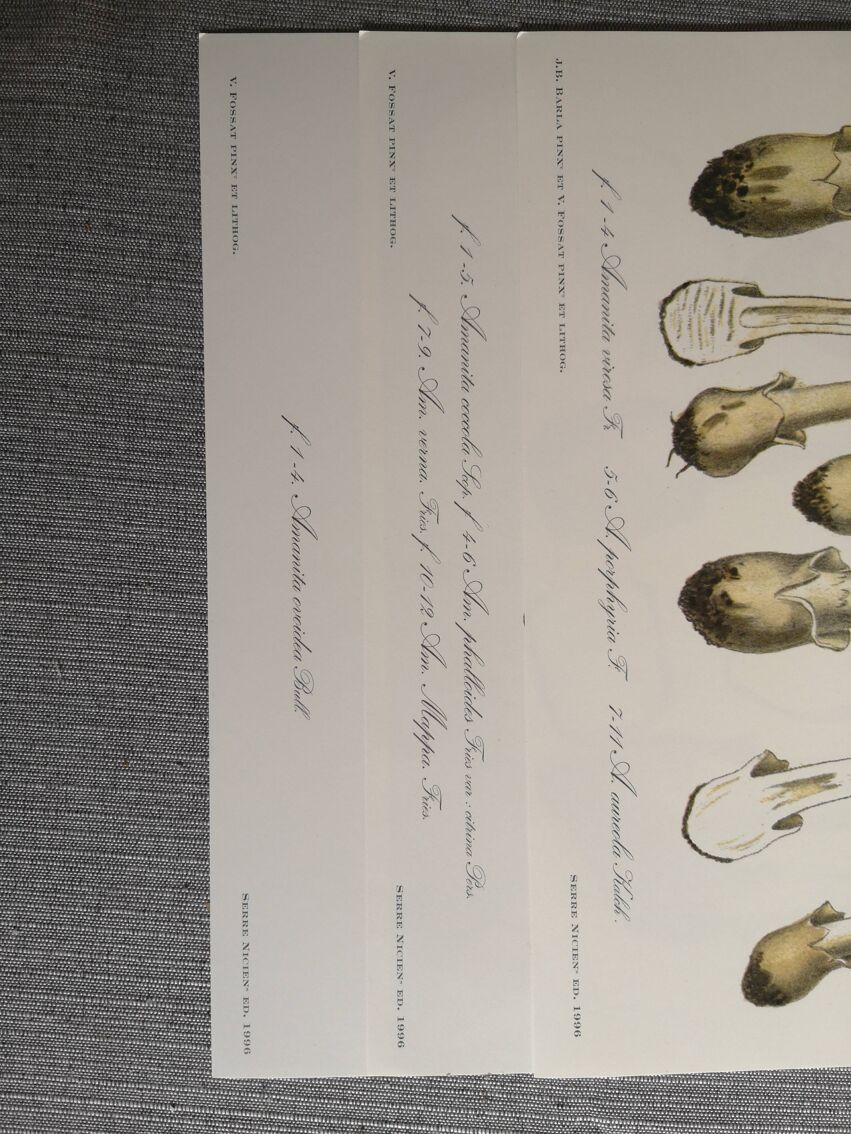 J.B. BARLA PINXᵗ ET V. FOSSAT PINXᵗ ET LITHOG.
SERRE NICIENᵉ ED. 1996
f. 1-4 Amanita virosa Fr. 5-6 A. porphyria Fr. 7-11 A. aureola Kalch.
V. FOSSAT PINXᵗ ET LITHOG.
SERRE NICIENᵉ ED. 1996
f. 1-5. Amanita coccola Scop. f. 4-6 Am. phalloides Fries var : citrina Pers.
f. 7-9. Am. verna. Fries. f. 10-12 Am. Mappa. Fries.
V. FOSSAT PINXᵗ ET LITHOG.
SERRE NICIENᵉ ED. 1996
f. 1-4. Amanita ovoidea Bull.